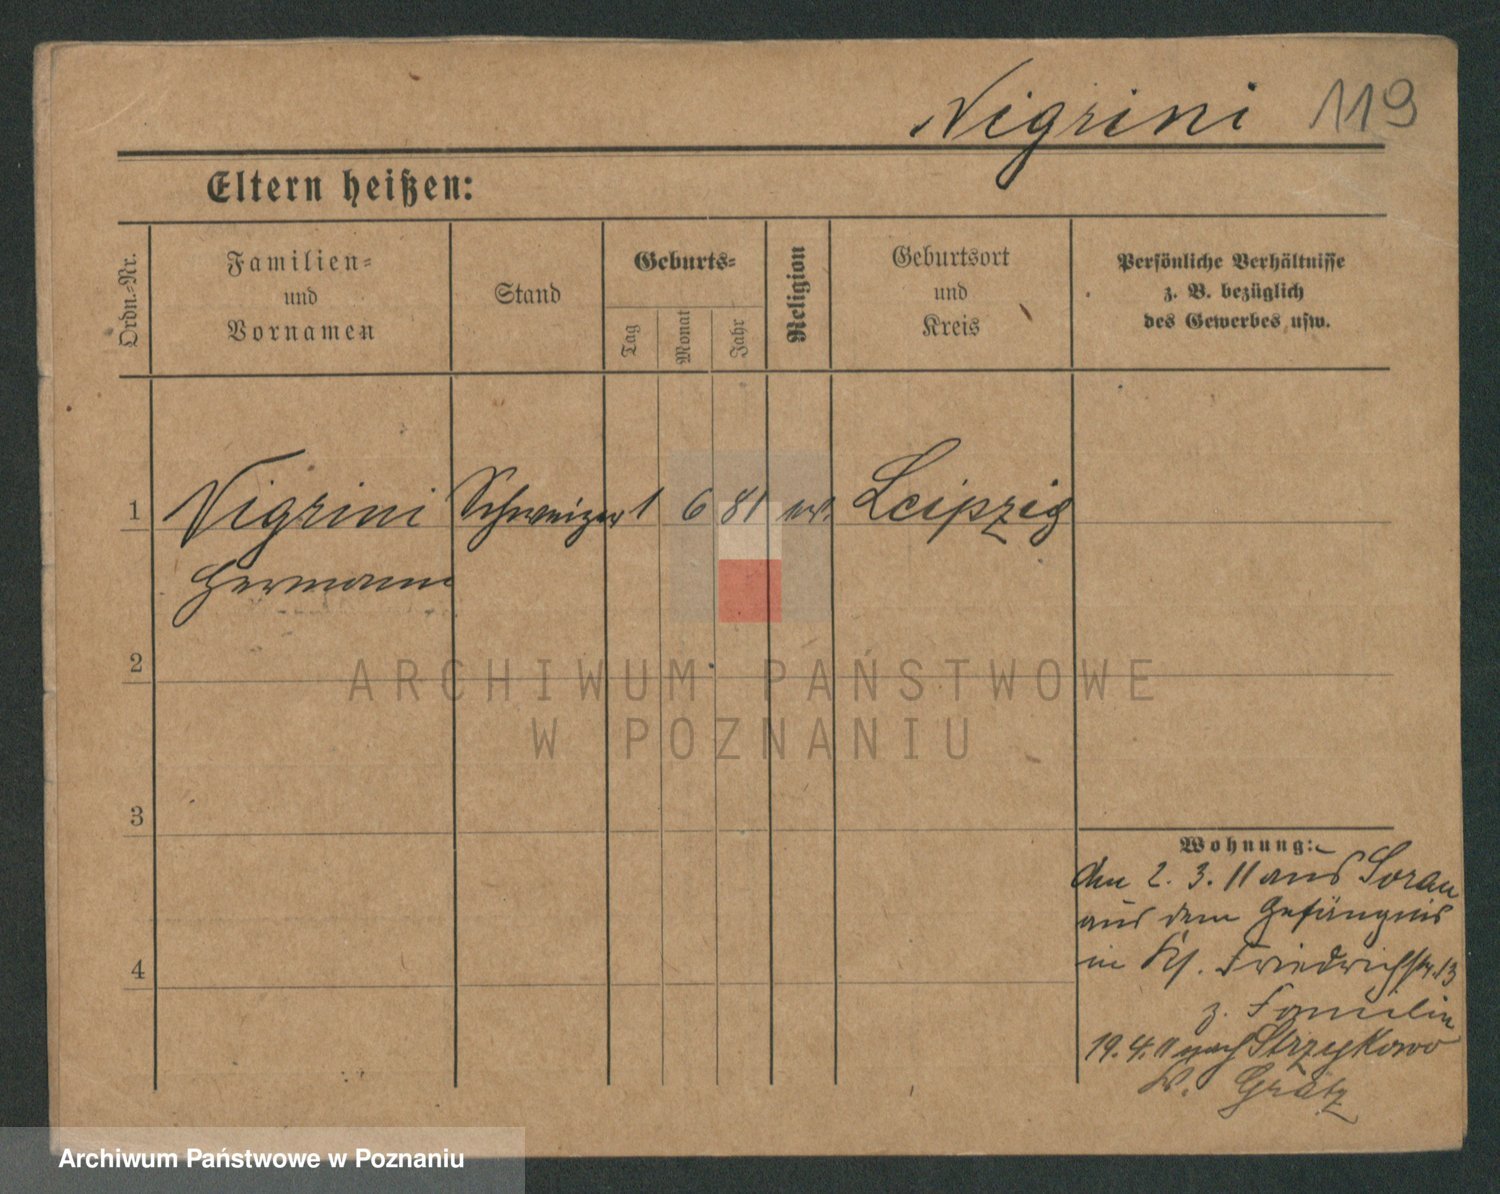 Nigrini 119
Eltern heißen:
Ordn.-Nr.
Familien-
und
Vornamen
Stand
Geburts-
Tag
Monat
Jahr
Religion
Geburtsort
und
Kreis
Persönliche Verhältnisse
z. B. bezüglich
des Gewerbes usw.
1 Nigrini Schweizer 1 6 81 ev. Leipzig
Hermann
2
3
4
Wohnung:
den 2. 3. 11 aus Sorau
aus dem Gefängnis
in Friedrichstr. 13
z. Familie
19. 4. 11 nach Strzykowo
Kr. Grätz
ARCHIWUM PAŃSTWOWE
W POZNANIU
Archiwum Państwowe w Poznaniu